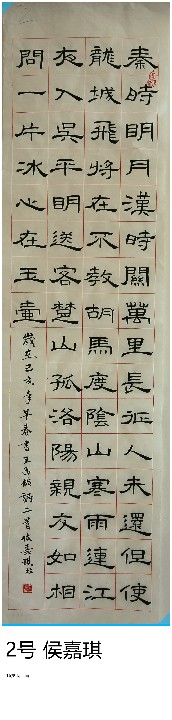 秦時明月漢時關萬里長征人未還但使
龍城飛將在不教胡馬度陰山寒雨連江
夜入吳平明送客楚山孤洛陽親友如相
問一片冰心在玉壺
歲在己亥年早春書王昌齡詩二首侯嘉琪
2号 侯嘉琪